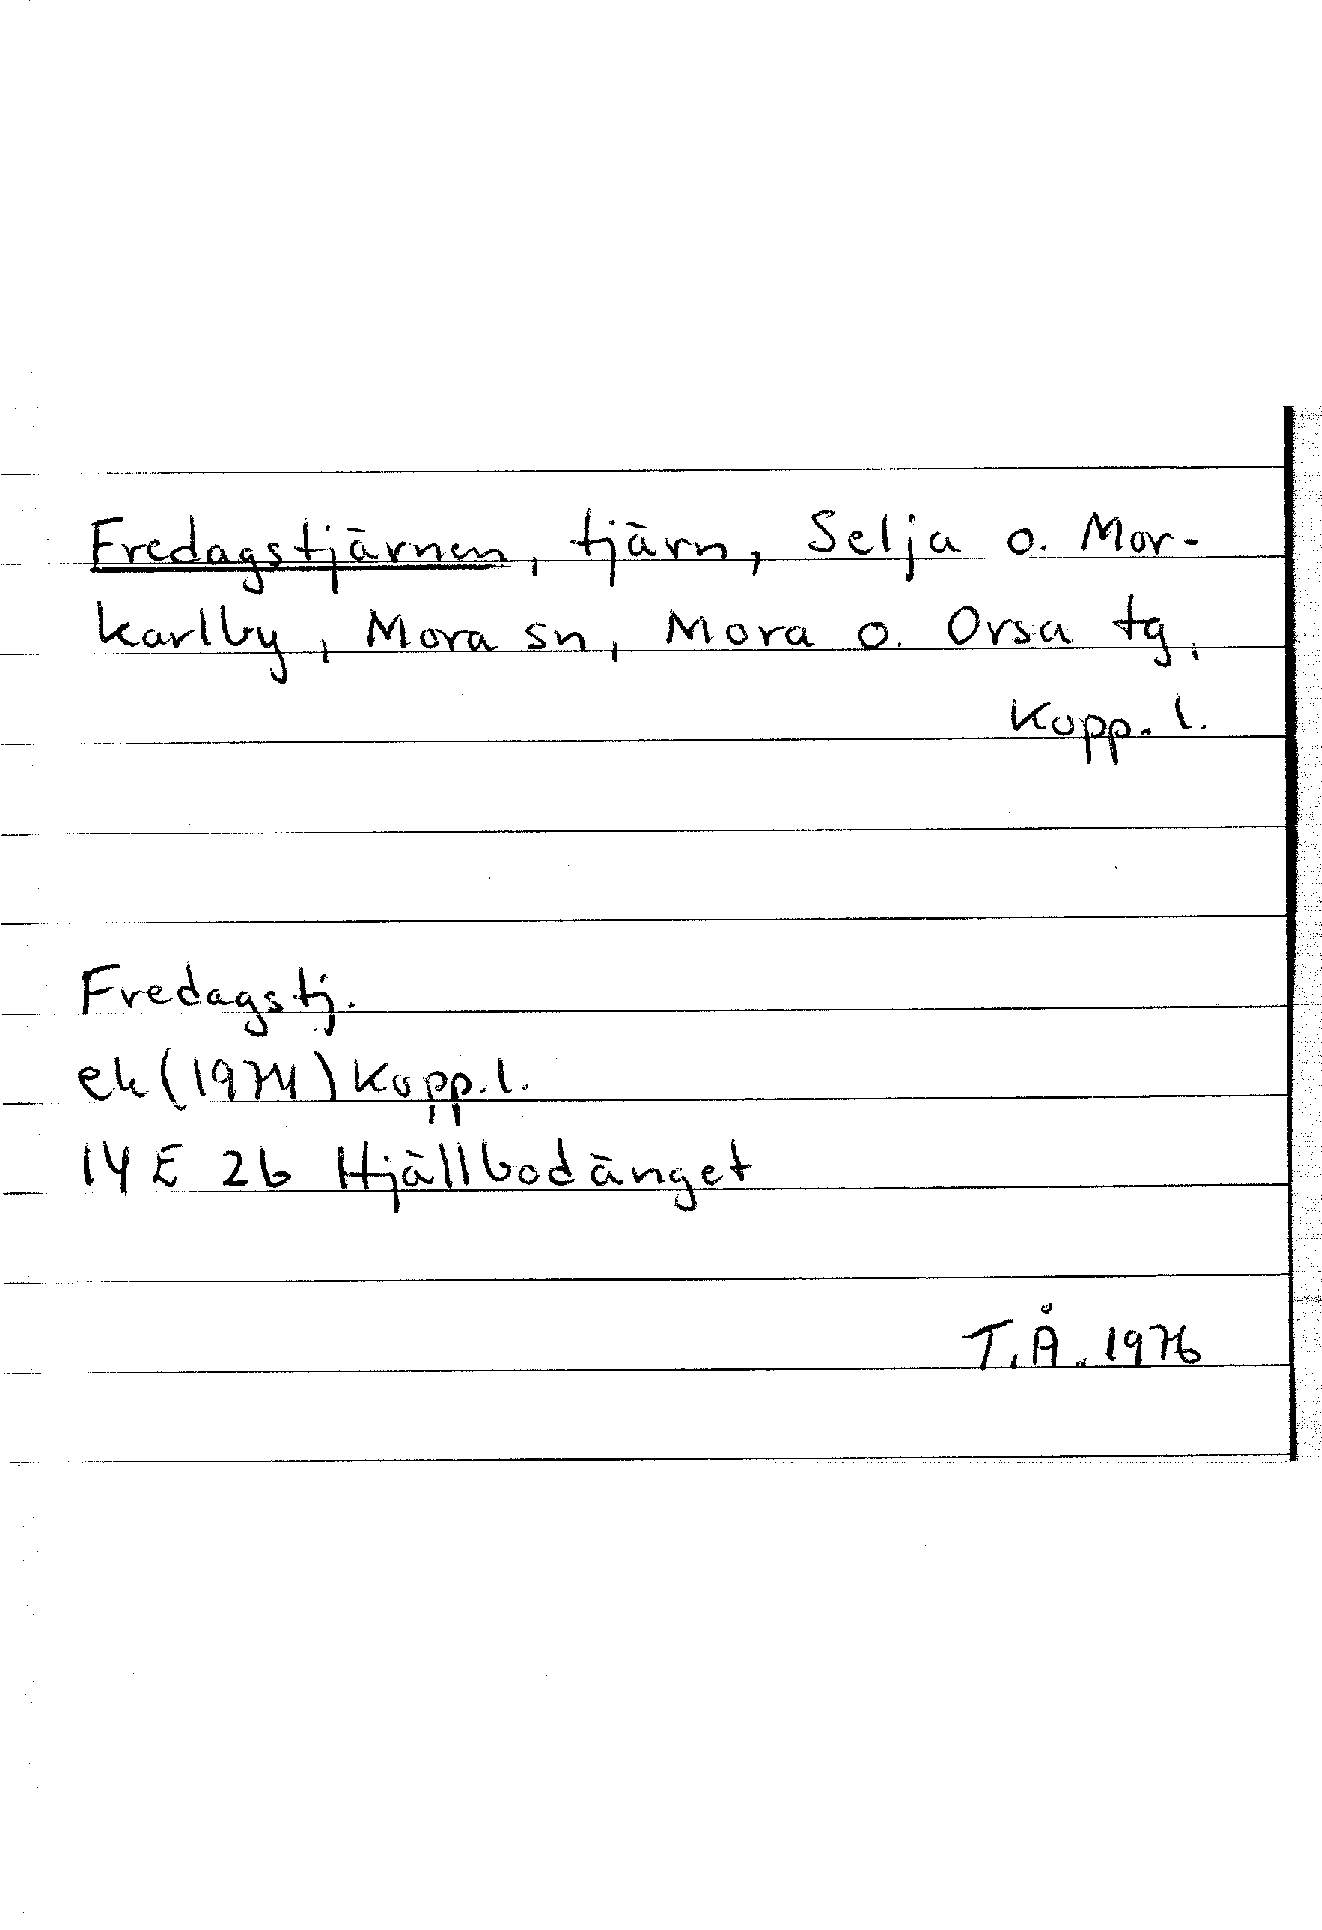 Fredagstjärnen, tjärn, Selja o. Mor-
karlby, Mora sn, Mora o. Orsa tg,
Kopp. l.
Fredagstj.
ek (1974) Kopp. l.
14 E 2b Hjällbodänget
T.Å. 1976